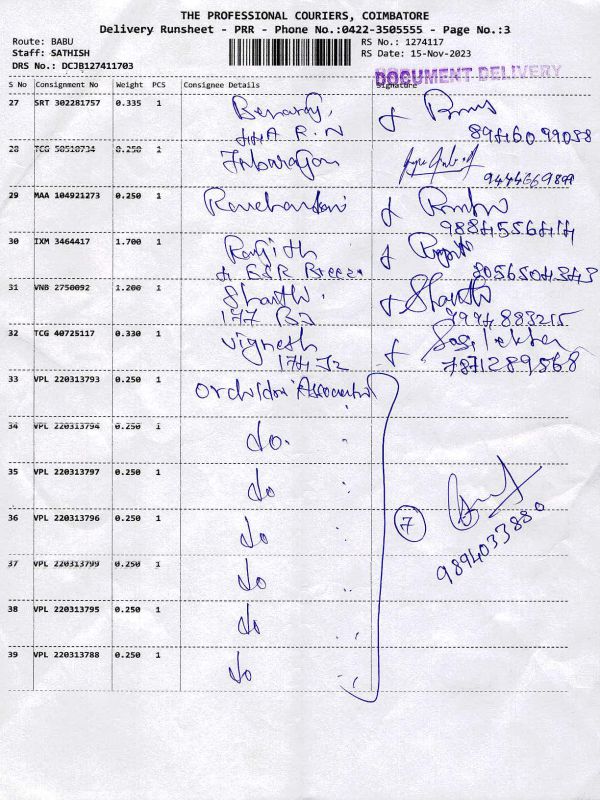 THE PROFESSIONAL COURIERS, COIMBATORE
Delivery Runsheet - PRR - Phone No.:0422-3505555 - Page No.:3
Route: BABU RS No.: 1274117
Staff: SATHISH RS Date: 15-Nov-2023
DRS No.: DCJB127411703
DOCUMENT DELIVERY
S No Consignment No Weight PCS Consignee Details Signature
27 SRT 302281757 0.335 1
R.N
28 TCG 50510734 0.250 1
9444669899
29 MAA 104921273 0.250 1
9884556414
30 IXM 3464417 1.700 1 Ranjith
Breeze 8056504343
31 VNB 2750092 1.200 1 Shanthi. Shanthi
177 7994883215
32 TCG 40725117 0.330 1 Vignesh
7871289568
33 VPL 220313793 0.250 1 Association
34 VPL 220313794 0.250 1 do.
35 VPL 220313797 0.250 1 do
36 VPL 220313796 0.250 1 do
7
9894033880
37 VPL 220313799 0.250 1 do
38 VPL 220313795 0.250 1 do
39 VPL 220313788 0.250 1 do